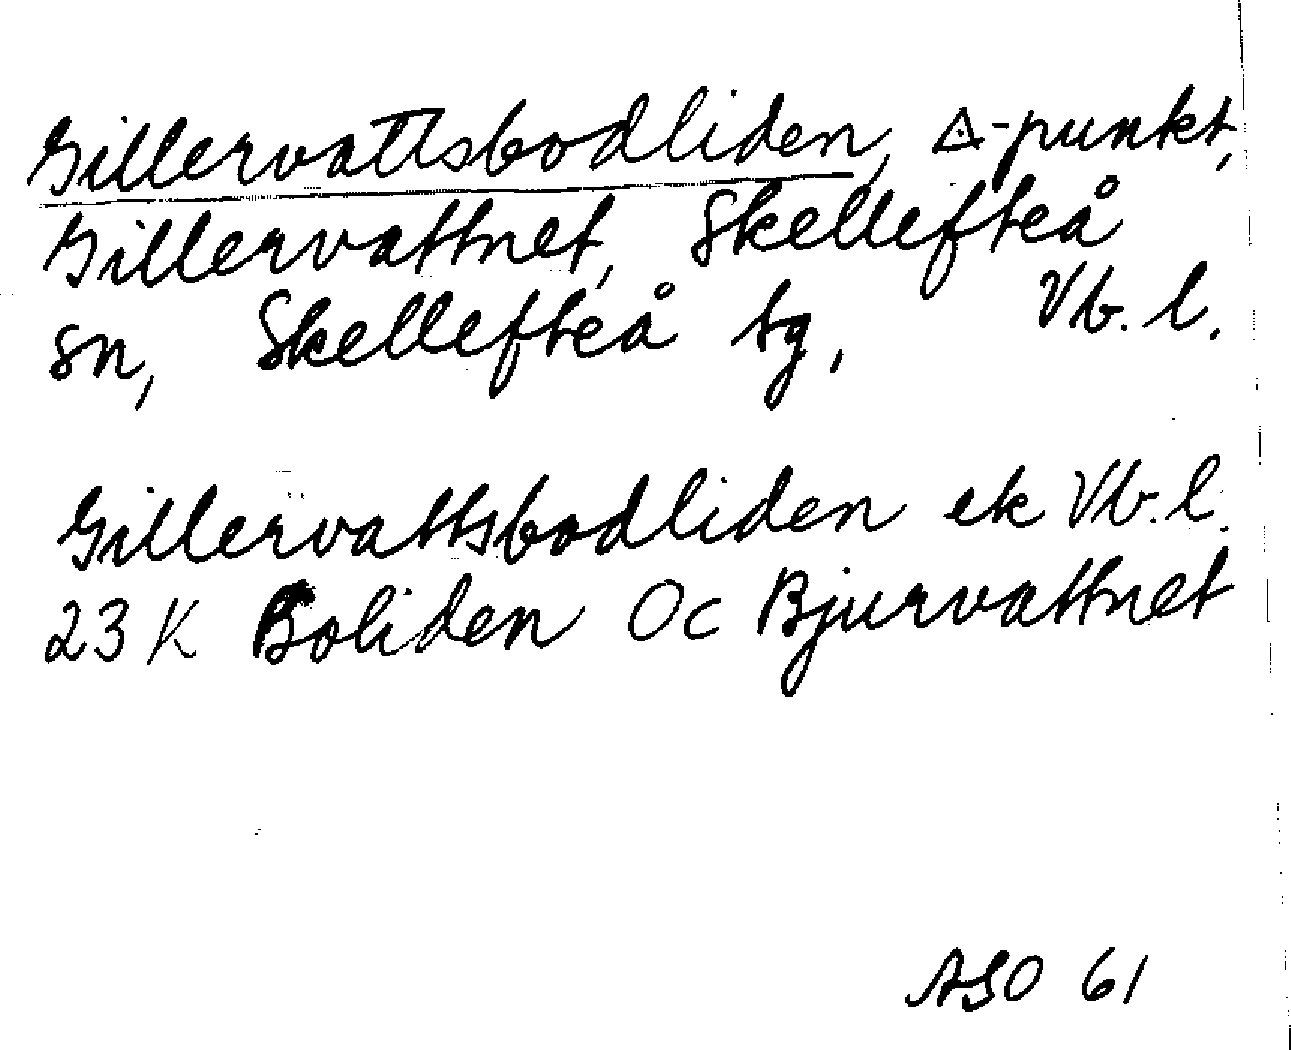 Gillervattsbodliden, △-punkt,
Gillervattnet, Skellefteå
sn, Skellefteå tg, Vb. l.
Gillervattsbodliden ek Vb. l.
23 K Boliden Oc Bjurvattnet
ASO 61